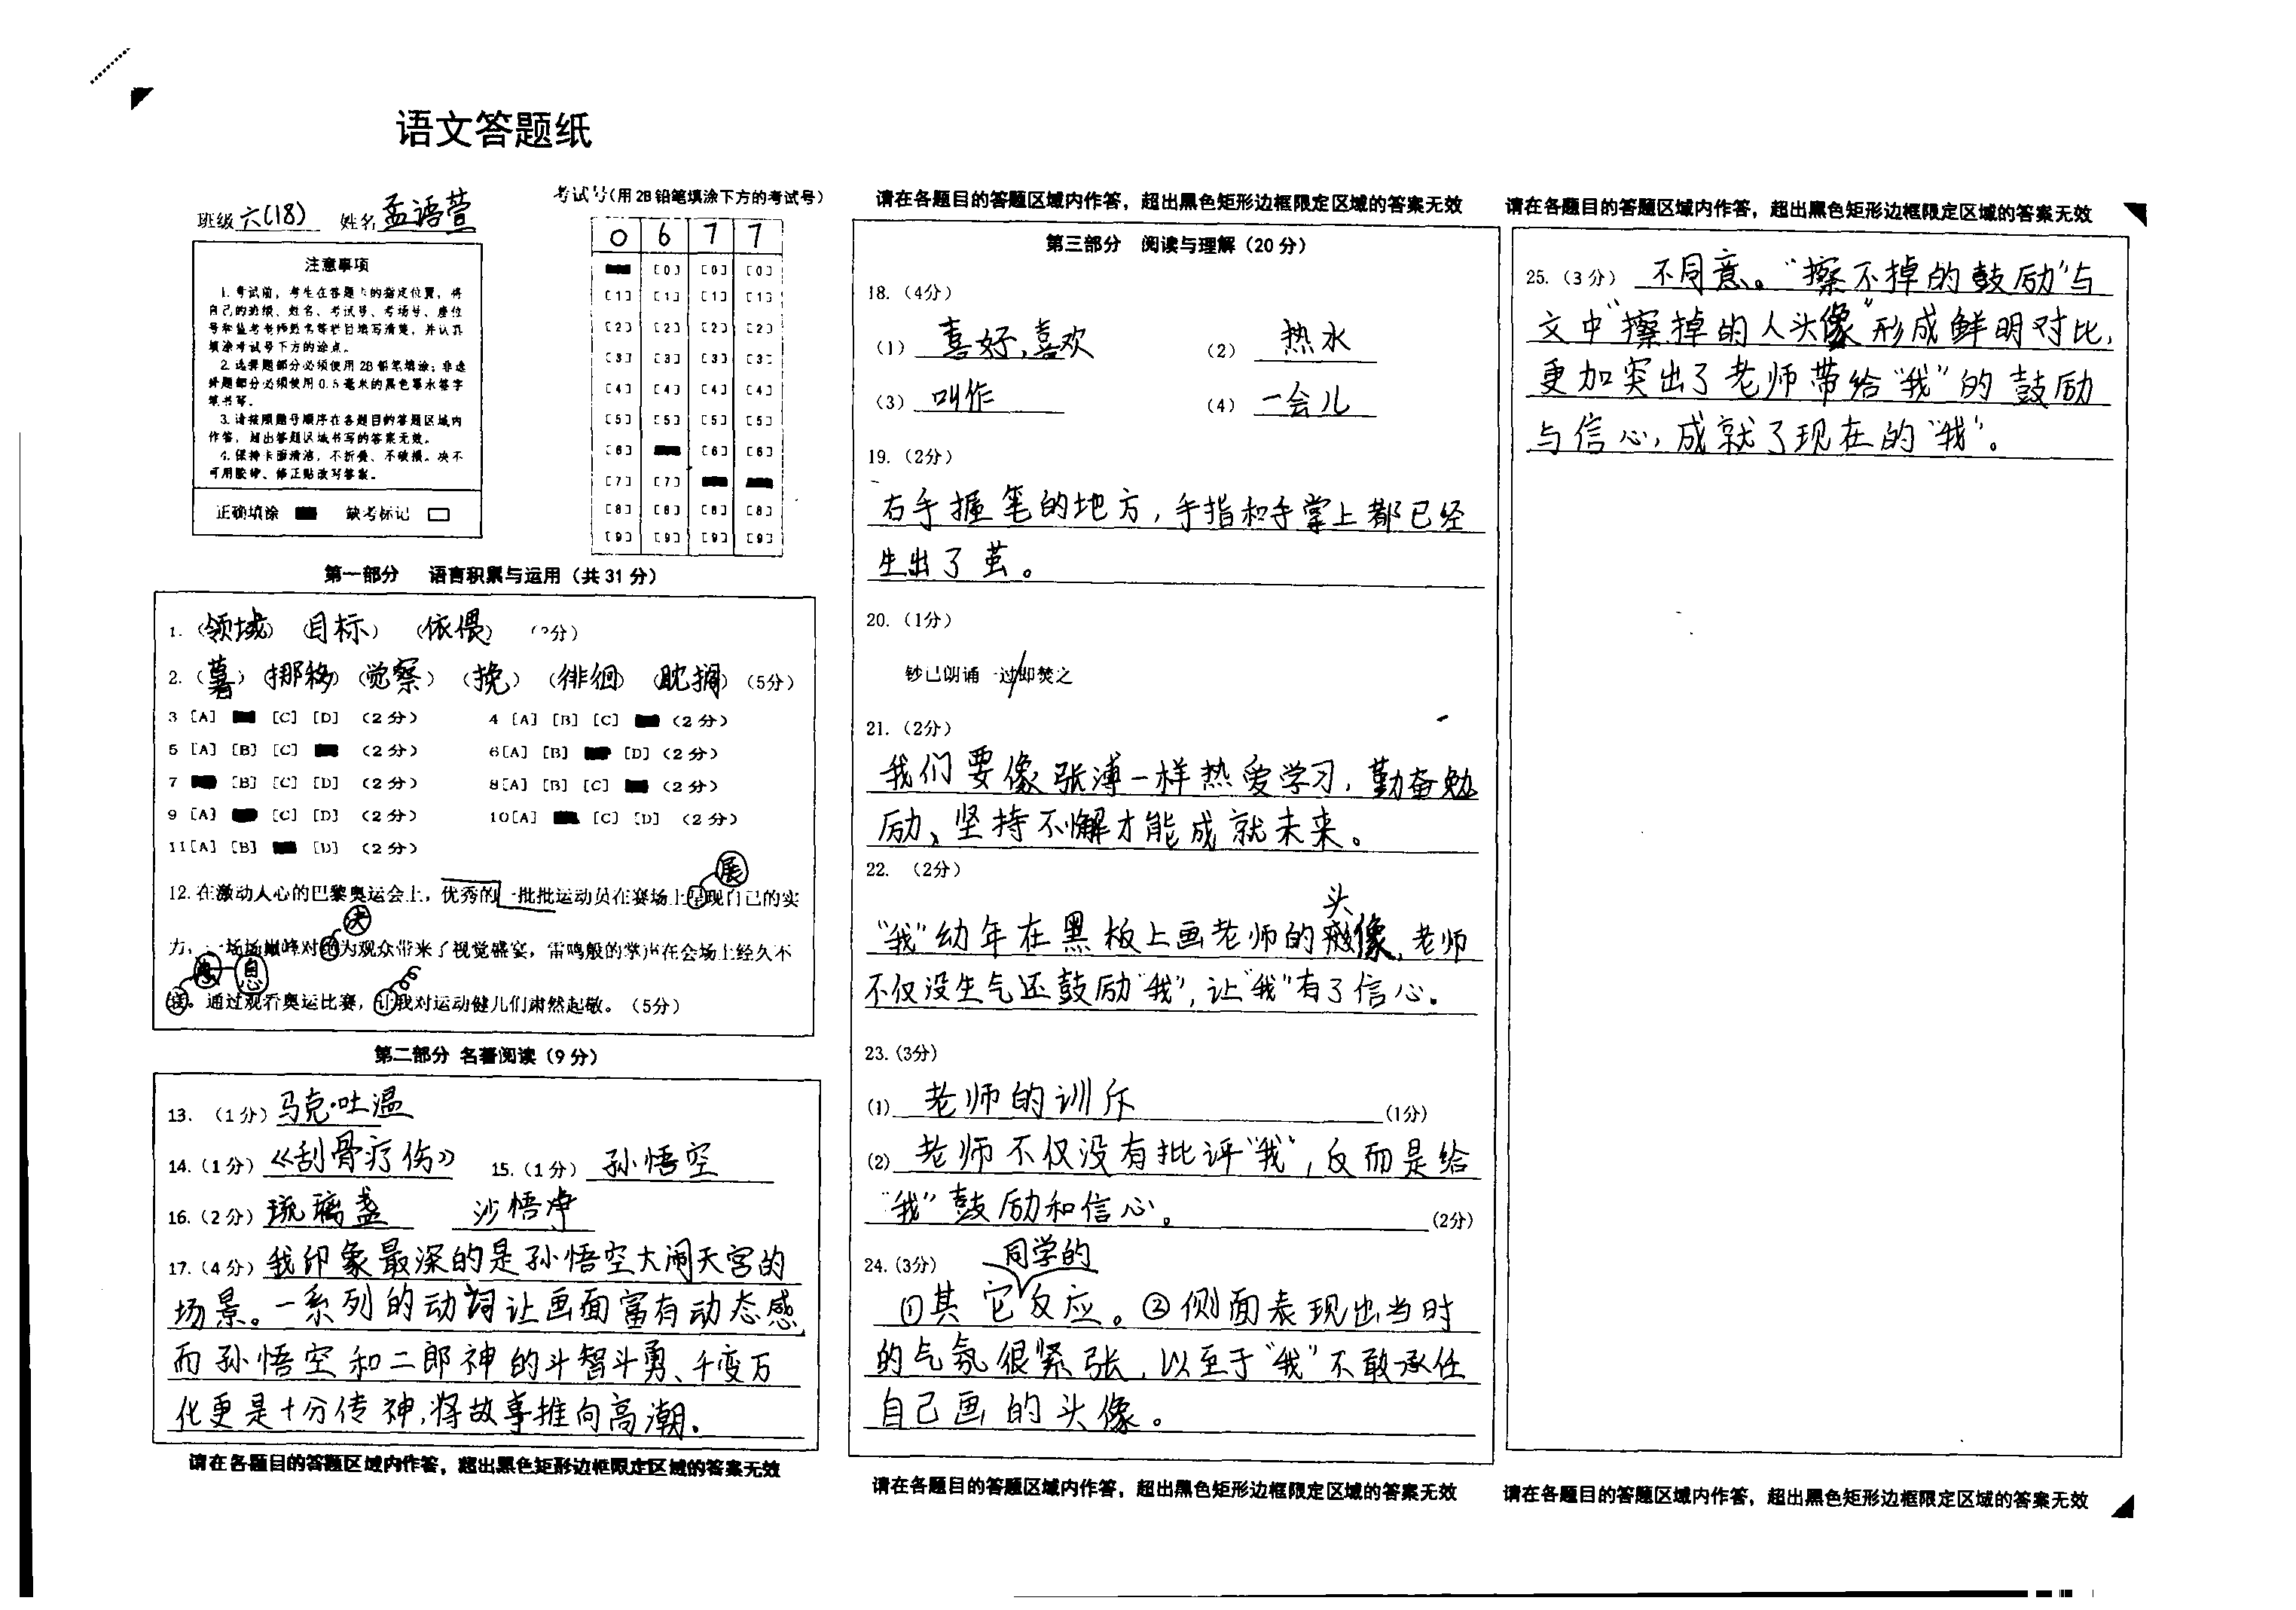 语文答题纸
班级 六(18) 姓名 孟语萱
考试号(用2B铅笔填涂下方的考试号)
0 6 7 7
[0] [0] [0]
[1] [1] [1] [1]
[2] [2] [2] [2]
[3] [3] [3] [3]
[4] [4] [4] [4]
[5] [5] [5] [5]
[6] [6] [6]
[7] [7]
[8] [8] [8] [8]
[9] [9] [9] [9]
注意事项
1.考试前,考生在答题卡的指定位置,将
自己的班级、姓名、考试号、考场号、座位
号和监考老师姓名等栏目填写清楚,并认真
填涂考试号下方的涂点。
2.选择题部分必须使用2B铅笔填涂;非选
择题部分必须使用0.5毫米的黑色墨水签字
笔书写。
3.请按照题号顺序在各题目的答题区域内
作答,超出答题区域书写的答案无效。
4.保持卡面清洁,不折叠、不破损。决不
可用胶带、修正贴改写答案。
正确填涂 缺考标记
第一部分 语言积累与运用(共31分)
1.(领域)(目标)(依偎)(3分)
2.(薯)(挪移)(觉察)(挽)(徘徊)(耽搁)(5分)
3 [A] [C] [D] (2分) 4 [A] [B] [C] (2分)
5 [A] [B] [C] (2分) 6[A] [B] [D] (2分)
7 [B] [C] [D] (2分) 8[A] [B] [C] (2分)
9 [A] [C] [D] (2分) 10[A] [C] [D] (2分)
11[A] [B] [D] (2分)
展
12.在激动人心的巴黎奥运会上,优秀的一批批运动员在赛场上呈现自己的实
决
力,一场场巅峰对绝为观众带来了视觉盛宴,雷鸣般的掌声在会场上经久不
息
。通过观看奥运比赛,让我对运动健儿们肃然起敬。(5分)
第二部分 名著阅读(9分)
13.(1分)马克·吐温
14.(1分)《刮骨疗伤》 15.(1分)孙悟空
16.(2分)琉璃盏 沙悟净
17.(4分)我印象最深的是孙悟空大闹天宫的
场景。一系列的动词让画面富有动态感,
而孙悟空和二郎神的斗智斗勇、千变万
化更是十分传神,将故事推向高潮.
请在各题目的答题区域内作答,超出黑色矩形边框限定区域的答案无效
请在各题目的答题区域内作答,超出黑色矩形边框限定区域的答案无效
第三部分 阅读与理解(20分)
18.(4分)
(1) 喜好,喜欢 (2) 热水
(3) 叫作 (4) 一会儿
19.(2分)
右手握笔的地方,手指和手掌上都已经
生出了茧。
20.(1分)
钞已朗诵一过/即焚之
21.(2分)
我们要像张溥一样热爱学习,勤奋勉
励、坚持不懈才能成就未来。
22.(2分)
头
“我”幼年在黑板上画老师的像,老师
不仅没生气还鼓励“我”,让“我”有了信心.
23.(3分)
(1) 老师的训斥 (1分)
(2) 老师不仅没有批评“我”,反而是给
“我”鼓励和信心。 (2分)
24.(3分) 同学的
①其它反应。②侧面表现出当时
的气氛很紧张,以至于“我”不敢承任
自己画的头像。
请在各题目的答题区域内作答,超出黑色矩形边框限定区域的答案无效
请在各题目的答题区域内作答,超出黑色矩形边框限定区域的答案无效
25.(3分) 不同意。“擦不掉的鼓励”与
文中“擦掉的人头像”形成鲜明对比,
更加突出了老师带给“我”的鼓励
与信心,成就了现在的“我”。
请在各题目的答题区域内作答,超出黑色矩形边框限定区域的答案无效